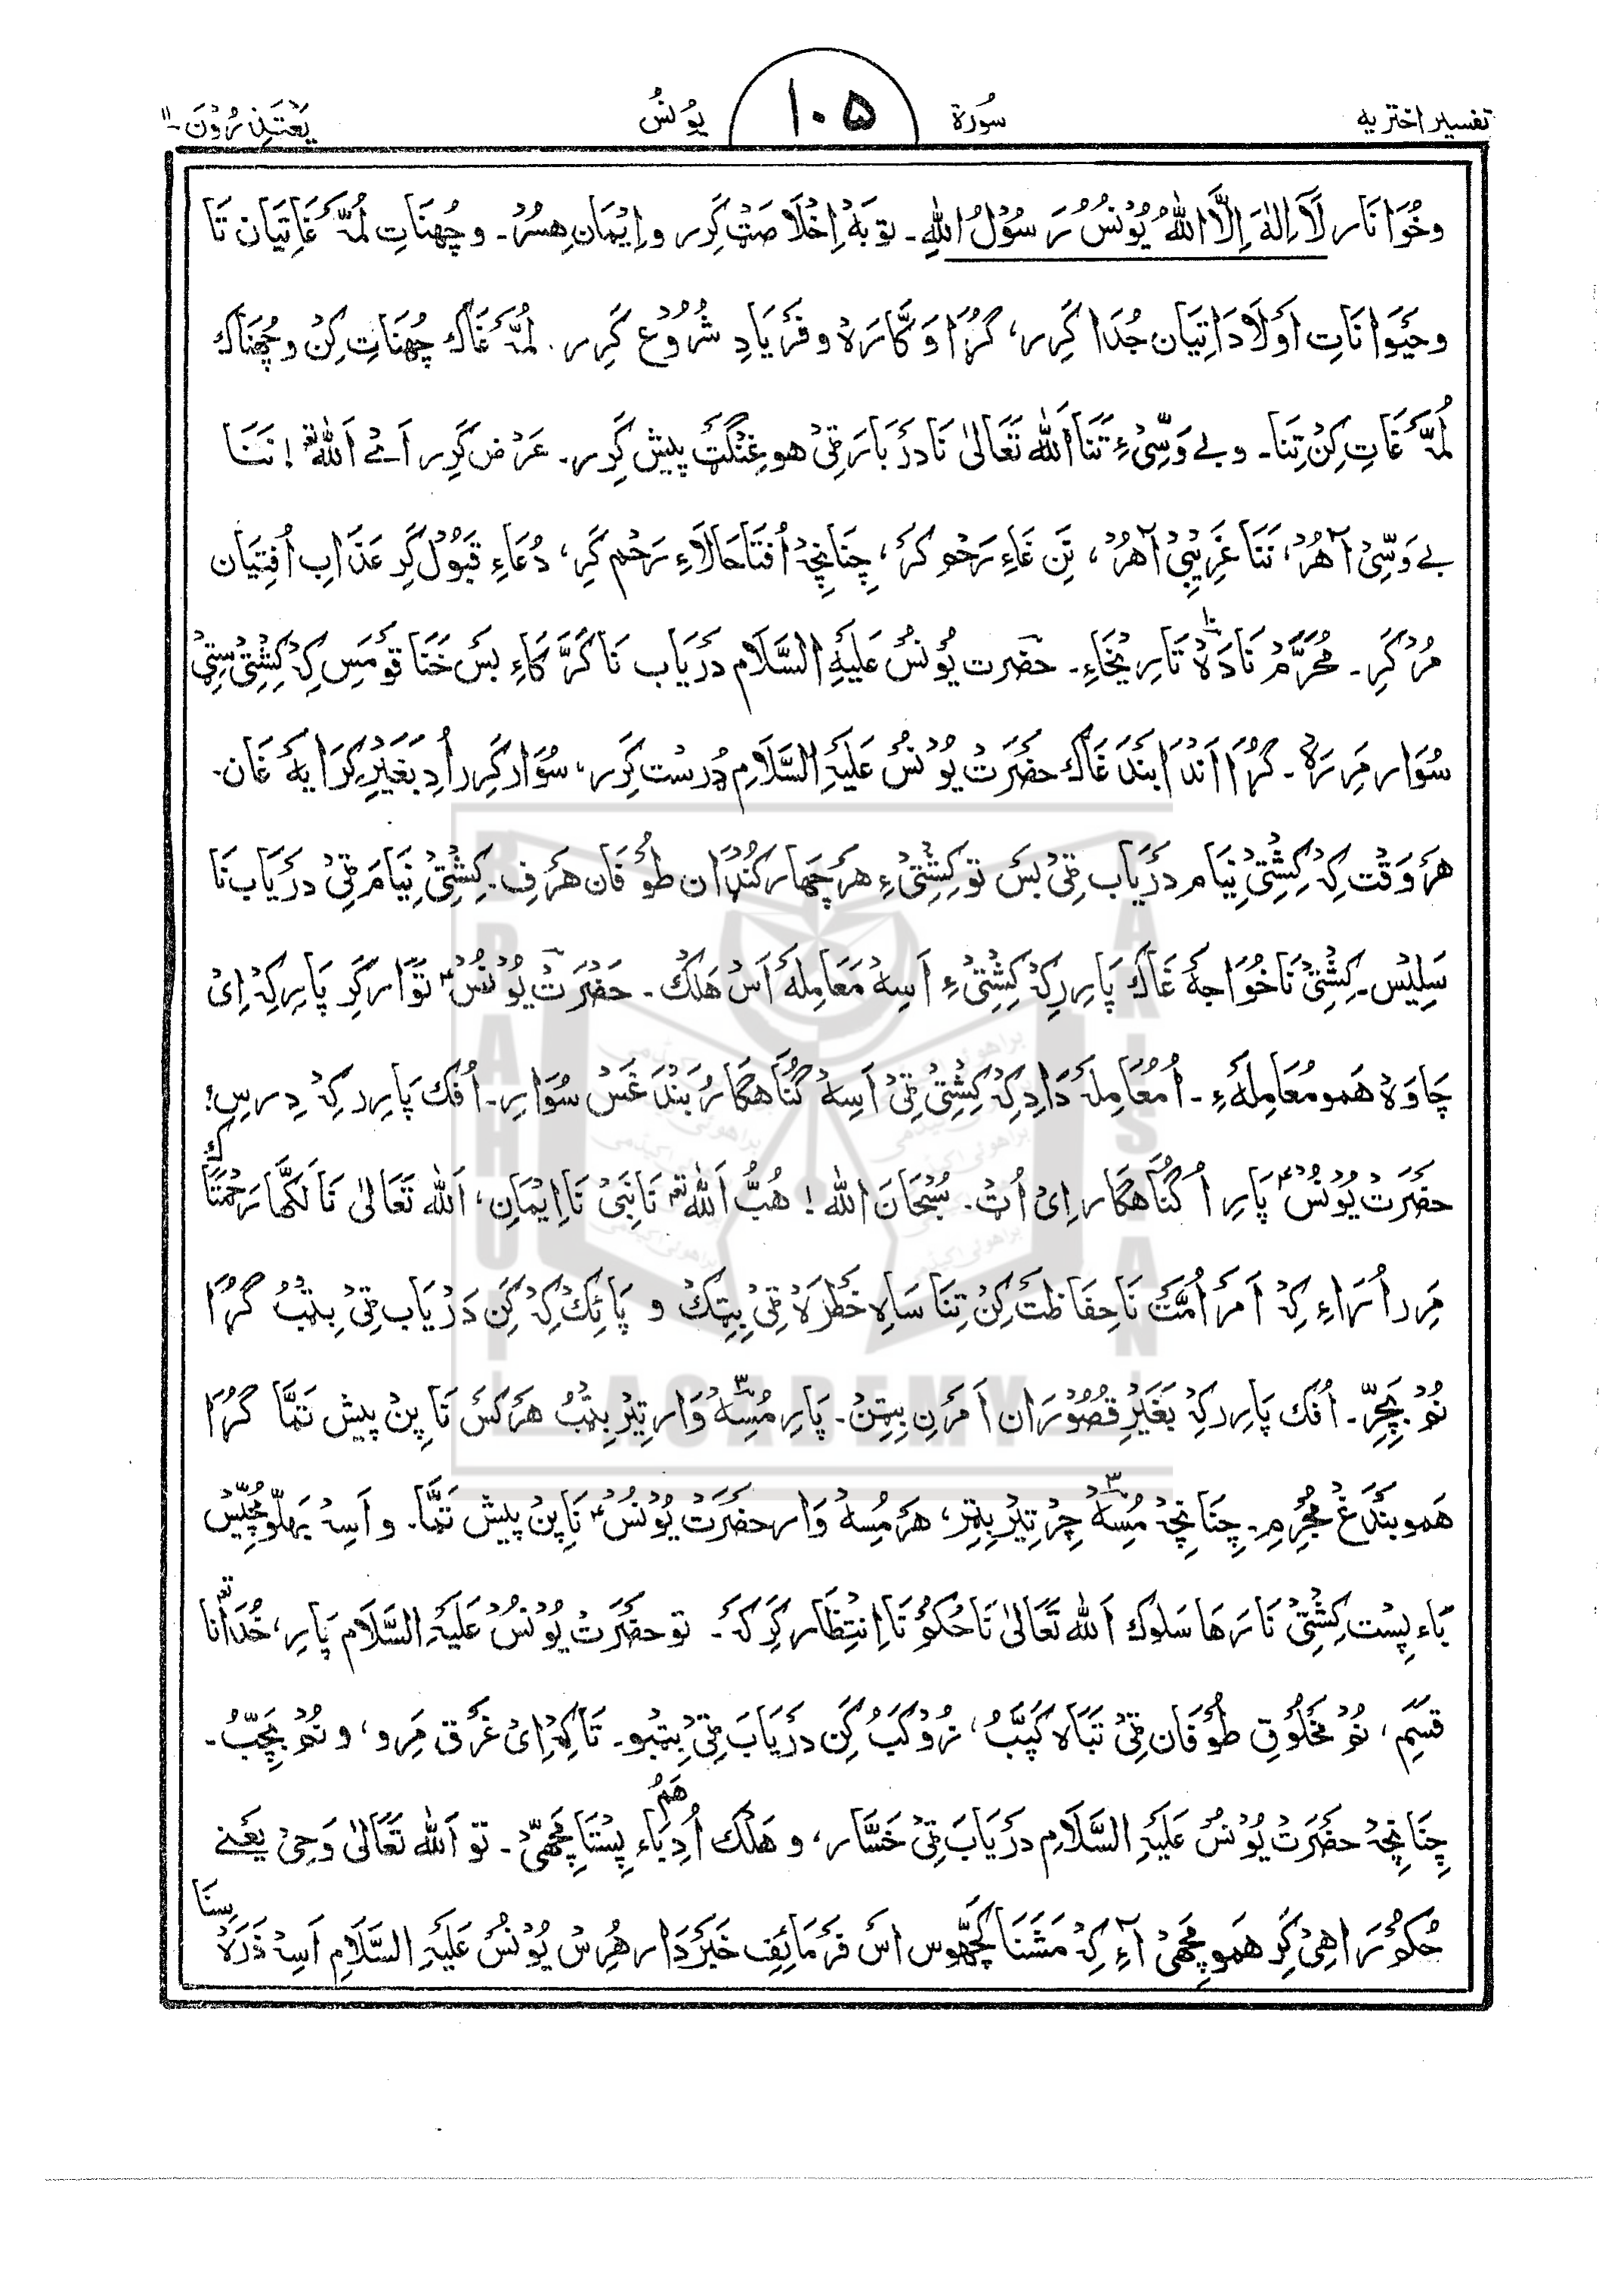 تفسیر اختریه سُورة ۱۰۵ یُونسُ یَعْتَذِرُوْنَ۔۱۱
وخُوَانَار لَآ اِلٰهَ اِلَّا اللهُ یُوْنُسُ رَسُوْلُ اللهِ۔ توبَهْ اِخْلَاصَتْ کَرِر و اِیْمَان هِسُرْ۔ و چُهنَاتِ لُمَّه غَاتِیَان تَا
وحَیْوَانَاتِ اَوْلَادَاتِیَان جُدَا کَرِر، گُڑَا وَکَّارَهْ وفَرْیَادِ شُرُوْع کَرِر. لُمَّه غَاک چُهنَاتِ کِنْ و چُهنَاک
لُمَّه غَاتِ کِنْ تِنَا۔ و بے وَسِّیْ ءِ تَنَا اَللّٰه تَعَالیٰ نَا دَرْبَارَ ٹِیْ هو غِنْگَتْ پیش کَرِر۔ عَرْض کَرِر اَےْ اَللّٰهؔ! نَنَا
بے وَسِّیْ آهُرْ، نَنَا غَرِیْبِیْ آهُرْ، نَن غَاءِ رَحْم کَرْ، چِنَانچِهْ اُفْتَا حَالَاءِ رَحْم کَرِ، دُعَاءِ قَبُوْل کَرِ عَذَابِ اُفْتِیَان
مُرْ کَرِ۔ مُحَرَّمْ نَا دَهْ تَارِیْخَاءِ۔ حضرت یُوْنُسْ عَلَیْهِ السَّلَام دَرْیَاب نَا کَرَّ کَاءِ بَسْ خَنَا قَوْمَسِ کِهْ کِشْتِیْ سِٹِیْ
سُوَار مَرِرَهْ۔ گُڑَا اَنْدَا بَنْدَغَاک حضَرَتْ یُوْنُسْ عَلَیْهِ السَّلَامِ دُرُسْت کَرِر، سُوَار کَرِر اُدِ بَغَیْرِ کِرَایه غَان۔
هَرْوَقْت کِهْ کِشْتِیْ نِیَام دَرْیَاب ٹِیْ بَسْ تو کِشْتِیْ ءِ هَرْچَهار کُنْڈَان طُوْفَان هَرْفِ۔ کِشْتِیْ نِیَامَ ٹِیْ دَرْیَاب نَا
سَلِیْس۔ کِشْتِیْ نَا خُوَاجَهْ غَاک پَارِر کِهْ کِشْتِیْ ءِ اَسِهْ مَعَامِلَهْ اَسْ هَلْک۔ حَضْرَتْ یُوْنُسْؑ تَوَار کَرِ پَارِ کِهْ اِیْ
چَاوَهْ هَمو مُعَامِلَهْءِ۔ اُ مُعَامِلَهْ دَادِ کِهْ کِشْتِیْ ٹِیْ اَسِهْ گُنَاهگَارُ بَنْدَغَسْ سُوَارِ۔ اُفْک پَارِر کِهْ دِرسِ؟
حضَرَتْ یُوْنُسْؑ پَارِ اُ گُنَاهگَار اِیْ اُتْ۔ سُبْحَانَ الله! هُبُّ اَللّٰهؔ نَا نَبِیْ نَا اِیْمَانِ، اَللّٰه تَعَالیٰ نَا لَکّهَا رَحْمَتَاک
مَرِر اُرَاءِ کِهْ اَمَرْ اُمَّتْ نَا حِفَاظَتْ کِنْ تِنَا سَاهِ خَطْرَهْ ٹِیْ بِیْتِک و پَائِک کِهْ کَنِ دَرْیَاب ٹِیْ بِٹبُ گُڑَا
نُمْ بَچِرِّ۔ اُفْک پَارِر کِهْ بَغَیْرِ قُصُوْرَان اَمَرْ نِ بِیْتِنْ۔ پَارِ مُسِهْ وَار تِیْرْ بِٹبُ هَرْکَسْ نَا پِنْ پیش تَمَّا گُڑَا
هَمو بَنْدَغْ مُجْرِمِ۔ چِنَانچِهْ مُسِهْ چِرْ تِیْرْ بِٹِرْ، هَرْمُسِهْ وَار حضَرَتْ یُوْنُسْؑ نَا پِنْ پیش تَمَّا۔ و اَسِهْ بَهلّو مَچّھیْس
بَاءِ پِسْت کِشْتِیْ نَا رَهَا سَلوک اَللّٰه تَعَالیٰ نَا حُکْمْ نَا اِنْتِظَار کَرِکهْ۔ تو حضَرَتْ یُوْنُسْ عَلَیْهِ السَّلَام پَارِ، خُدَاؔنا
قَسَمِ، نُمْ مَخْلُوْقِ طُوْفَان ٹِیْ تَبَاه کَپَبُ، زُوْ کَبُ کَنِ دَرْیَابَ ٹِیْ بِٹبو۔ تَاکِهْ اِیْ غَرْق مَرِو، و نُمْ بَچِّبُ۔
چِنَانچِهْ حضَرَتْ یُوْنُسْ عَلَیْهِ السَّلَامِ دَرْیَابَ ٹِیْ خَسَّار، و هَلْک اُدِ هَمُ بَاءِ پِسْتَا مَچّھیْ۔ تو اَللّٰه تَعَالیٰ وَحِیْ یَعْنے
حُکْمْ رَاهِیْ کَرِ هَمو مَچھیْ آءِ کِهْ مَشَنَا کَچّھوس اَسْ فَرْمَائِفِ خَبَرْدَار هُرِسْ یُوْنُسْ عَلَیْهِ السَّلَامِ اَسِهْ ذَرَّهْ سنَا